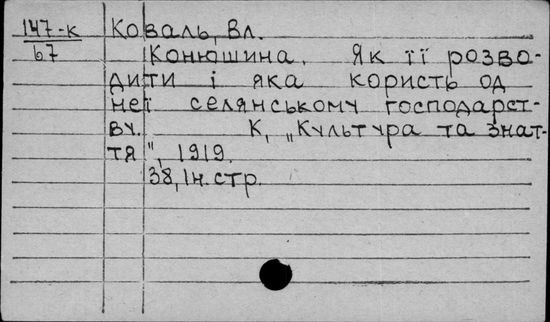 147-к
67
Коваль, Вл.
Конюшина. Як її розво-
дити і яка користь од
неї селянському господарст-
ву. К, „Культура та знат-
тя", 1919.
38, Ін. стр.